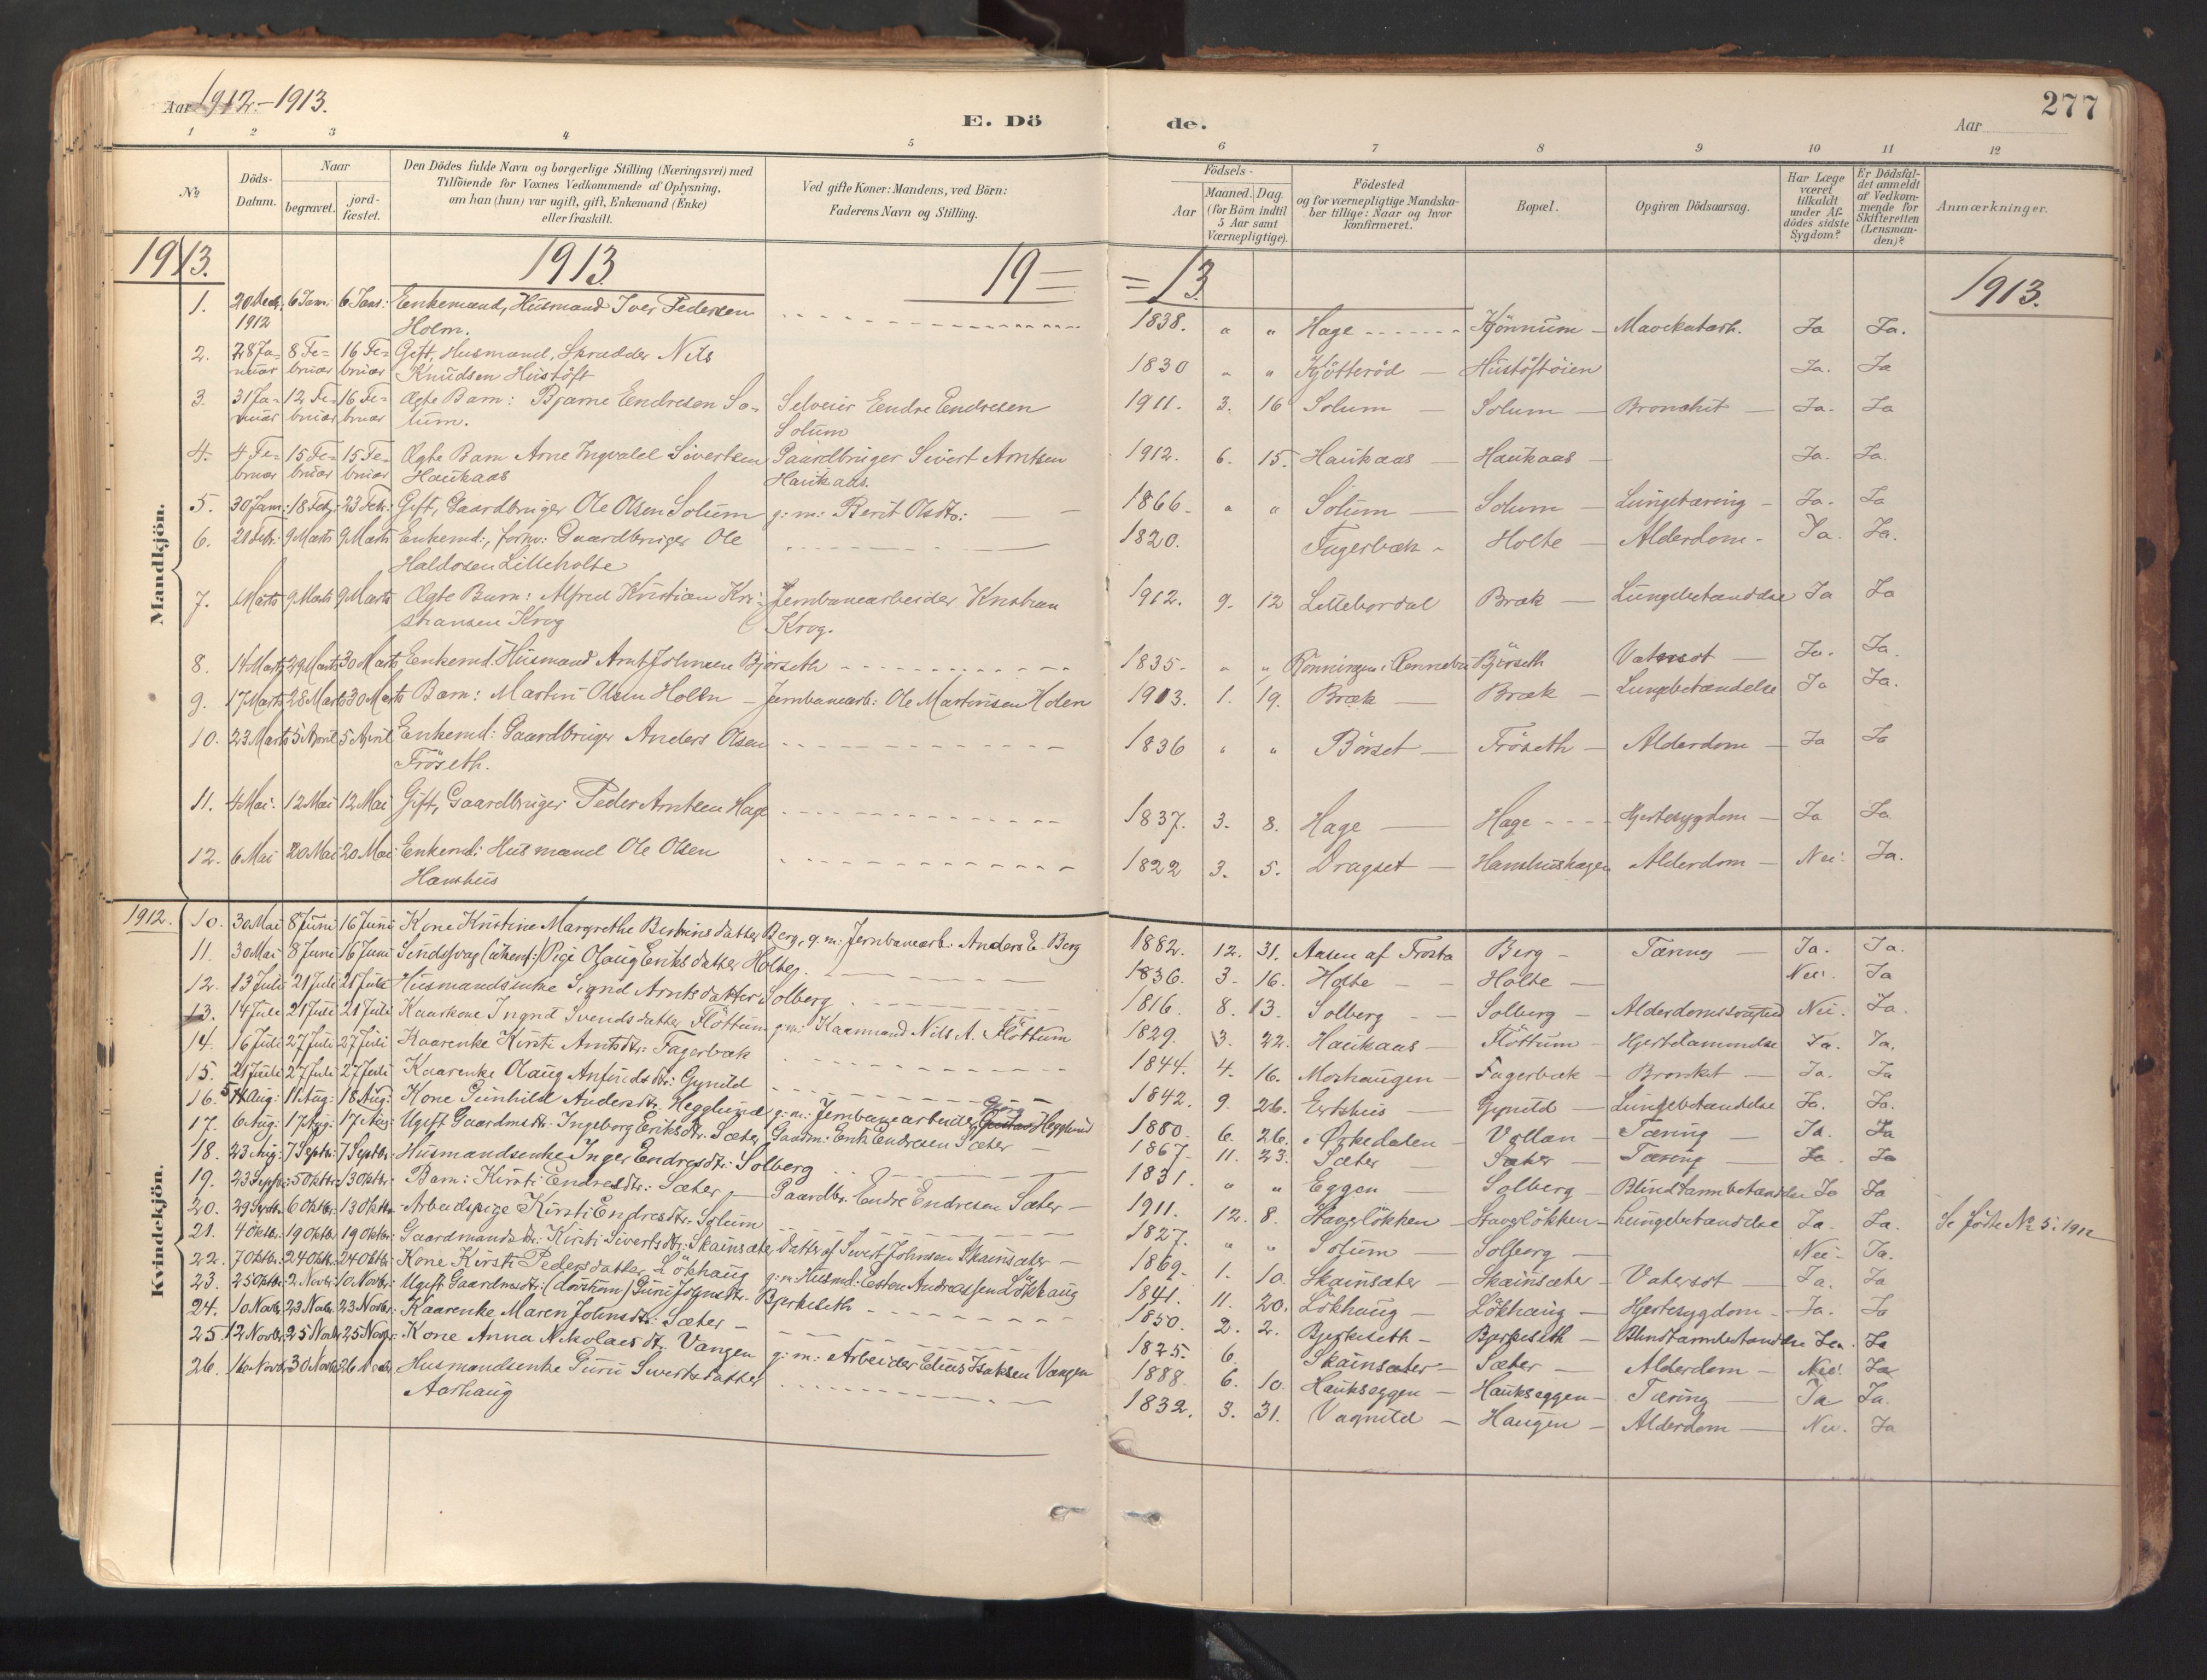 Aar 1912.-1913.
E. Dö
de.
Aar
277
1 2 3 4 5 6 7 8 9 10 11 12
No
Döds-Datum.
Naar
begravet.
jord-fæstet.
Den Dödes fulde Navn og borgerlige Stilling (Næringsvei) med
Tilföiende for Voxnes Vedkommende af Oplysning,
om han (hun) var ugift, gift, Enkemand (Enke)
eller fraskilt.
Ved gifte Koner: Mandens, ved Börn:
Faderens Navn og Stilling.
Födsels-
Aar
Maaned. Dag.
(for Börn indtil
5 Aar samt
Værnepligtige).
Födested
og for værnepligtige Mandska-
ber tillige: Naar og hvor
konfirmeret.
Bopæl.
Opgiven Dödsaarsag.
Har Læge
været
tilkaldt
under Af-
dödes sidste
Sygdom?
Er Dödsfal-
det anmeldt
af Vedkom-
mende for
Skifteretten
(Lensman-
den)?
Anmærkninger.
1913. 1913 19= =13 1913.
Mandkjön.
1. 20 Decb. 6 Jan: 6 Jan: Enkemand, Husmand Iver Pedersen
1912 Holm. 1838. " " Hage Kjönnum Mavekatarh. Ja Ja.
2. 28 Ja- 8 Fe- 16 Fe- Gift, Husmand, Skrædder Nils
nuar bruar bruar Knudsen Hustöft 1830 " " Kjötteröd Hustöftöien Ja. Ja
3. 31 Ja- 12 Fe- 16 Fe- Ægte Barn: Bjarne Endresen So- Selveier Endre Endresen 1911. 3. 16 Solum Solum Bronchit Ja. Ja
nuar bruar bruar lum. Solum
4. 4 Fe- 15 Fe- 15 Fe- Ægte Barn Arne Ingvald Sivertsen Gaardbruger Sivert Arntsen 1912. 6. 15. Haukaas Haukaas Ja. Ja.
bruar bruar bruar Haukaas Haukaas.
5. 30 Jan: 18 Feb: 23 Feb: Gift, Gaardbruger Ole Olsen Solum g: m: Berit Olsdtr: 1866 " " Solum Solum Lungetæring Ja. Ja
6. 20 Feb: 9 Marts 9 Marts Enkemd:, forhv: Gaardbruger Ole 1820. Fagerbæk Holte Alderdom Ja. Ja.
Haldosen Lilleholte
7. Marts 9 Marts 9 Marts Ægte Barn: Alfred Kristian Kri- Jernbanearbeider Kristian 1912. 9. 12 Lillebordal Bræk Lungebetændelse Ja Ja
stiansen Krog Krog.
8. 14 Marts 29 Marts 30 Marts Enkemd. Husmand Arnt Johnsen Bjørseth 1835 " " Rønningen i Rennebu Bjørseth Vatersot Ja. Ja.
9. 17 Marts 28 Marts 30 Marts Barn: Martin Olsen Holen Jernbanearb: Ole Martinsen Holen 1913. 1. 19. Bræk Bræk Lungebetændelse Ja Ja.
10. 23 Marts 5 April 5 April Enkemd: Gaardbruger Anders Olsen 1836 " " Börset Fröseth Alderdom Ja Ja
Fröseth.
11. 4 Mai. 12 Mai 12 Mai Gift, Gaardbruger Peder Arntsen Hage 1837. 3. 8. Hage Hage Hjertesygdom Ja Ja
12. 6 Mai 20 Mai 20 Mai Enkemd: Husmand Ole Olsen 1822 3. 5. Dragset Hanshushagen Alderdom Nei. Ja.
Hanshus
Kvindekjön.
1912. 10. 30 Mai 8 Juni 16 Juni Kone Kristine Margrethe Berntsdatter Berg, g. m: Jernbanearb: Anders E. Berg 1882. 12. 31. Aasen af Frosta Berg Tæring Ja. Ja.
11. 30 Mai 8 Juni 16 Juni Sindssvag Pige Olaug Eriksdatter Holte 1836. 3. 16. Holte Holte Nei. Ja
12. 13 Juli 21 Juli 21 Juli Husmandsenke Sigrid Arntsdatter Solberg 1816. 8. 13. Solberg Solberg Alderdomssvaghed Nei. Ja.
13. 14 Juli 21 Juli 21 Juli Kaarkone Ingrid Svendsdatter Flöttum g: m: Kaarmand Nils A. Flöttum 1829. 3. 22. Haukaas Flöttum Hjertelammelse Ja. Ja.
14. 16 Juli 27 Juli 27 Juli Kaarenke Kirsti Arntsdtr: Fagerbæk 1844. 4. 16. Moshaugen Fagerbæk Bronkit Ja. Ja
15. 21 Juli 27 Juli 27 Juli Kaarenke Olaug Anfindsdtr: Gynild 1842. 9. 26. Ertshus Gynild Lungebetændelse Ja. Ja.
16. 5 Aug: 11 Aug: 18 Aug: Kone Gunhild Andersdtr: Hegglund g: m: Jernbanearbeider Gustav Hegglund 1880. 6. 26. Ørkedalen Vollan Tæring Ja. Ja
17. 6 Aug: 17 Aug: 17 Aug: Ugift Gaardmdtr: Ingeborg Eriksdtr: Sæter Gaardm: Erik Endresen Sæter 1867. 11. 23. Sæter Sæter Tæring Ja Ja
18. 23 Aug: 7 Septbr: 7 Septbr: Husmandsenke Inger Endresdtr: Solberg 1831. " " Eggen Solberg Blindtarmbetændelse Ja Ja
19. 23 Septbr: 5 Oktbr: 13 Oktbr: Barn: Kirsti Endresdtr: Sæter Gaardbr. Endre Endresen Sæter 1911. 12. 8. Stavslökken Stavslökken Lungebetændelse Ja. Ja. Se Födte No 5. 1912
20. 29 Septbr. 6 Oktbr. 13 Oktbr. Arbeidspige Kirsti Endresdtr. Solum 1827. " " Solum Solberg Nei. Ja.
21. 4 Oktbr. 19 Oktbr. 19 Oktbr. Gaardmandsdtr: Kirsti Sivertsdtr: Skainsæter Datter af Sivert Johnsen Skainsæter 1869. 1. 10. Skainsæter Skainsæter Vatersot Ja. Ja
22. 7 Oktbr. 24 Oktbr. 24 Oktbr. Kone Kirsti Pedersdatter Lökhaug g: m: Husmd: Esten Andreassen Lökhaug 1841. 11. 20. Lökhaug Lökhaug Hjertesygdom Ja. Ja
23. 25 Oktbr. 2 Novbr. 10 Novbr. Ugift Gaardmdtr: (dövstum) Guru Johnsdtr. Bjerkeseth 1850. 2. 2. Bjerkeseth Bjerkeseth Blindtarmbetændelse Ja. Ja
24. 10 Novbr. 23 Novbr. 23 Novbr. Kaarenke Maren Johnsdtr: Sæter 1825. 6. Skainsæter Sæter Alderdom Nei. Ja
25. 12 Novbr. 25 Novbr. 25 Novbr. Kone Anna Nikolaisdtr. Vangen g: m: Arbeider Elias Isaksen Vangen 1888. 6. 10. Haukseggen Haukseggen Tæring Ja Ja
26. 16 Novbr. 30 Novbr. 26 Novbr. Husmandsenke Guru Sivertsdatter 1832. 3. 31. Vagnild Haugen Alderdom Nei. Ja
Aarhaug